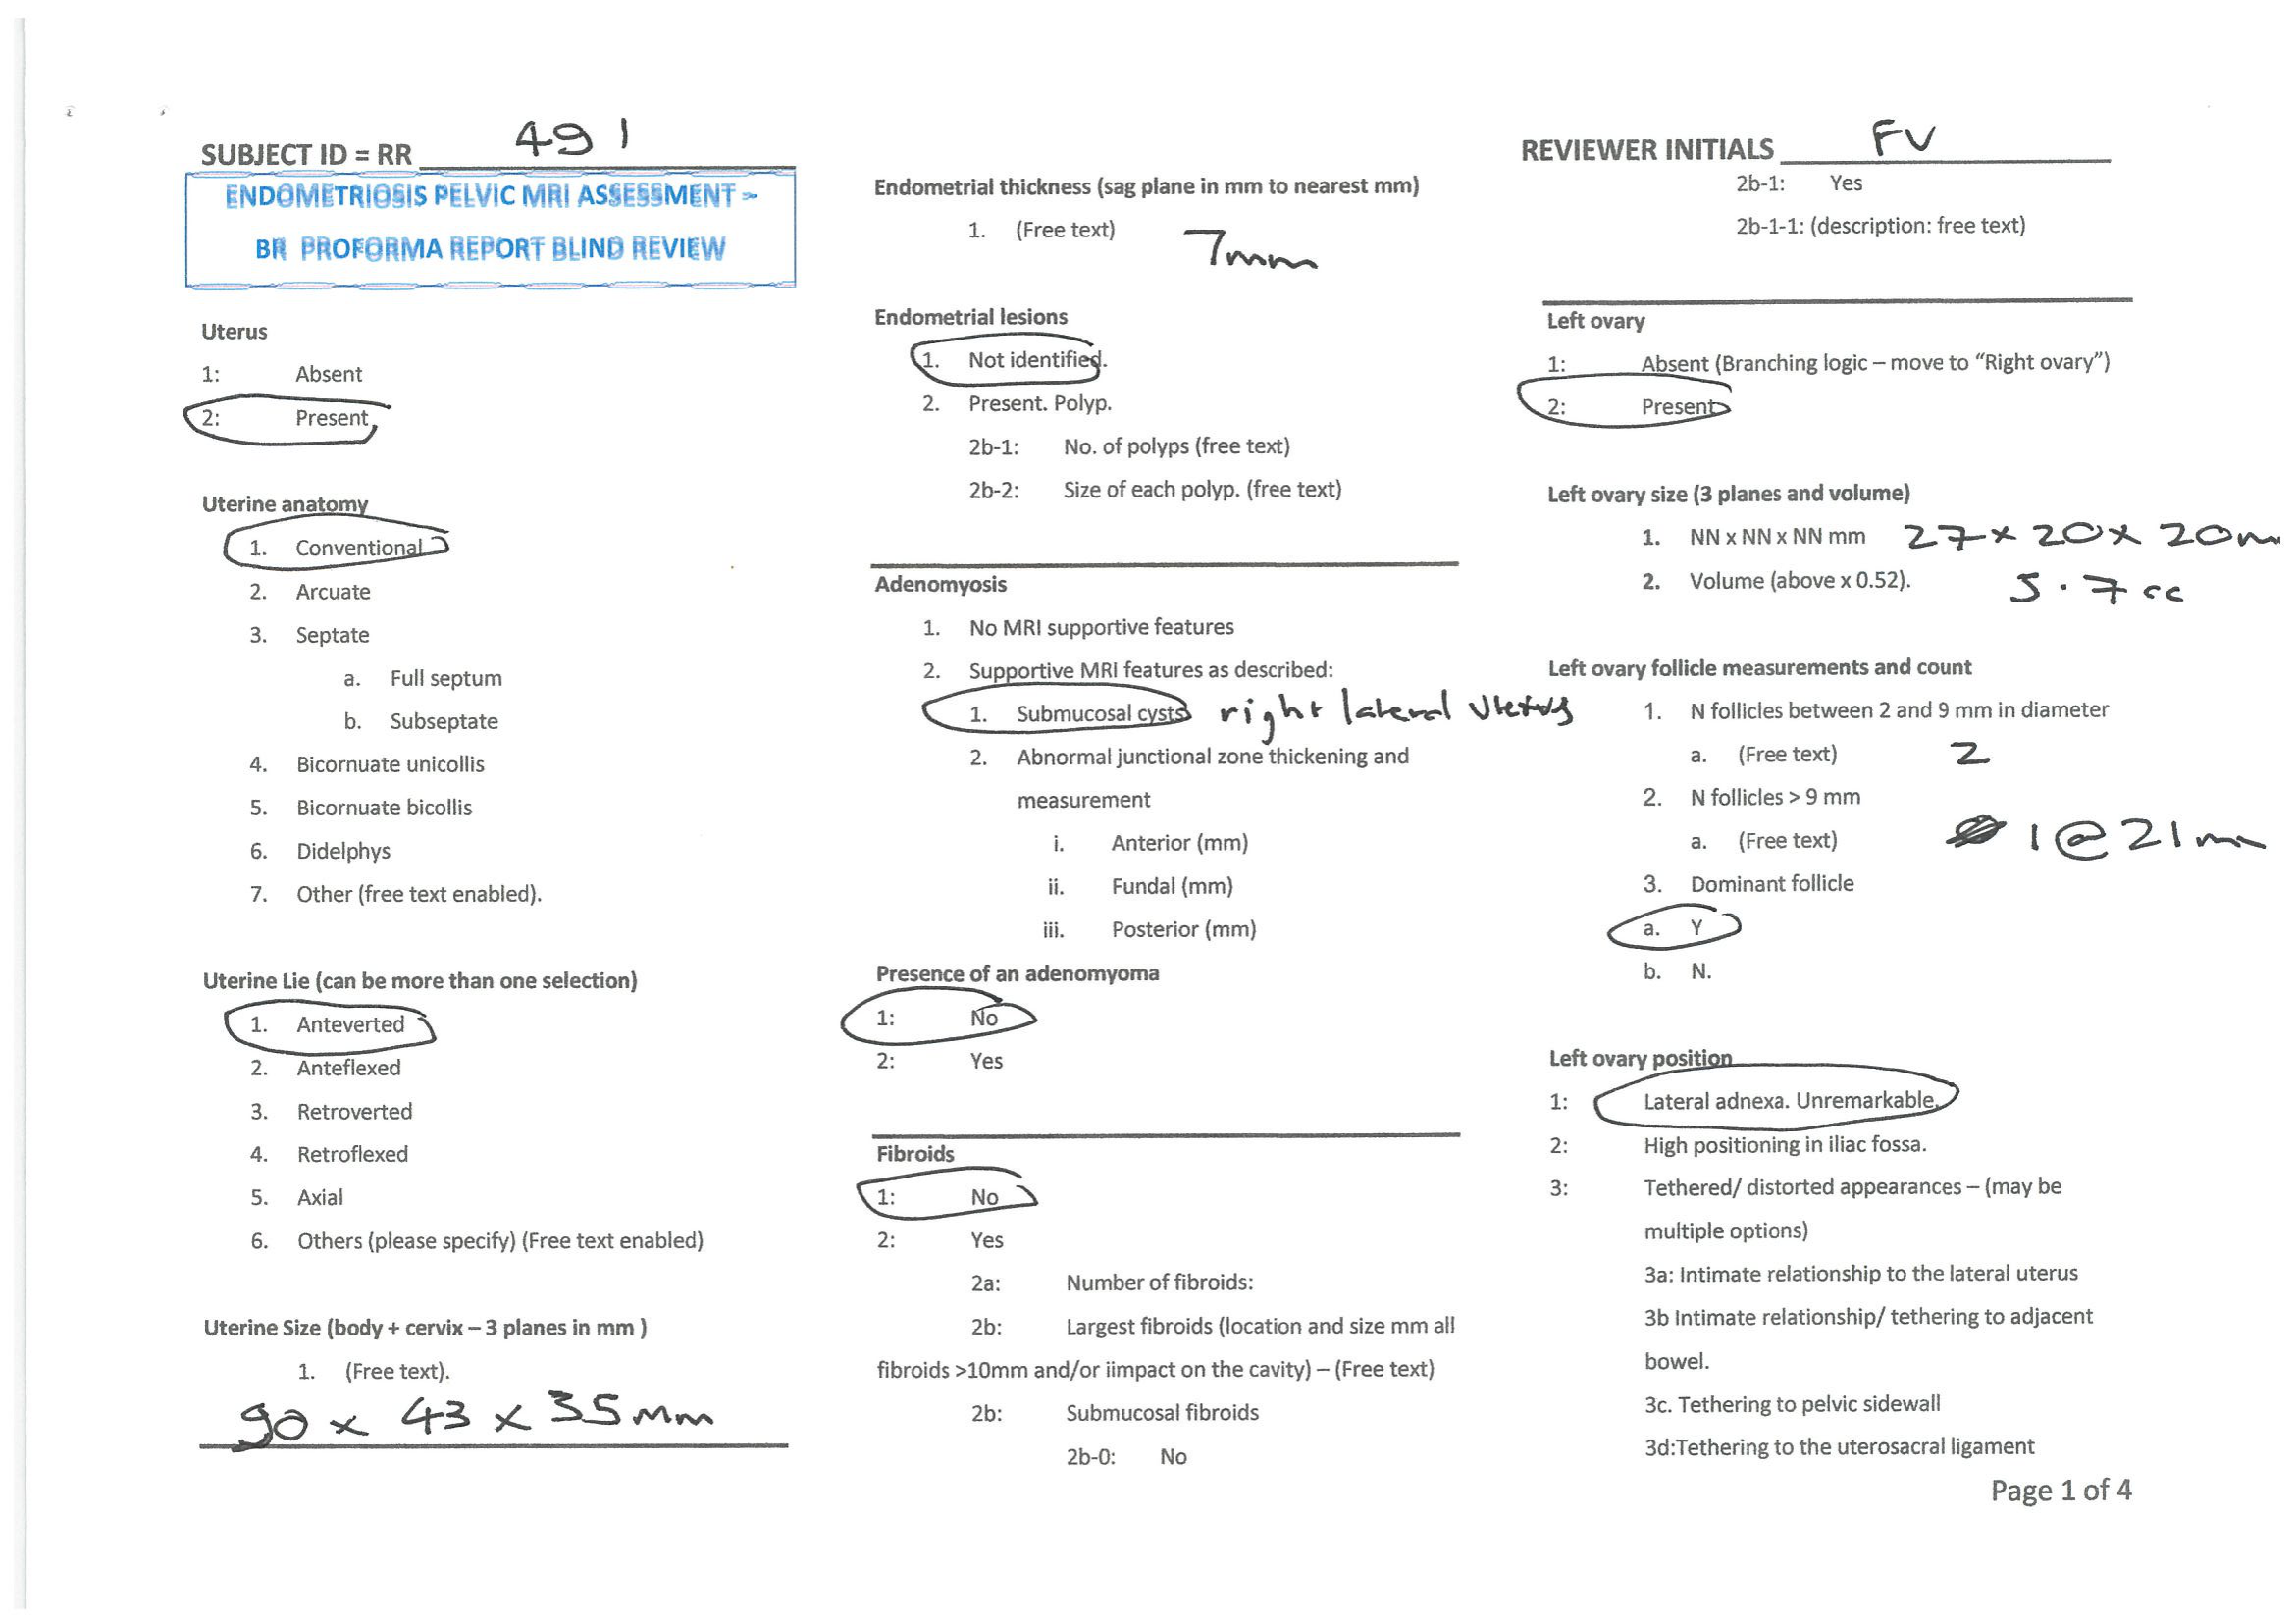 SUBJECT ID = RR 491
ENDOMETRIOSIS PELVIC MRI ASSESSMENT –
BR PROFORMA REPORT BLIND REVIEW
Uterus
1: Absent
2: Present
Uterine anatomy
1. Conventional
2. Arcuate
3. Septate
a. Full septum
b. Subseptate
4. Bicornuate unicollis
5. Bicornuate bicollis
6. Didelphys
7. Other (free text enabled).
Uterine Lie (can be more than one selection)
1. Anteverted
2. Anteflexed
3. Retroverted
4. Retroflexed
5. Axial
6. Others (please specify) (Free text enabled)
Uterine Size (body + cervix – 3 planes in mm )
1. (Free text).
90 x 43 x 35mm
Endometrial thickness (sag plane in mm to nearest mm)
1. (Free text) 7mm
Endometrial lesions
1. Not identified.
2. Present. Polyp.
2b-1: No. of polyps (free text)
2b-2: Size of each polyp. (free text)
Adenomyosis
1. No MRI supportive features
2. Supportive MRI features as described:
1. Submucosal cysts right lateral uterus
2. Abnormal junctional zone thickening and
measurement
i. Anterior (mm)
ii. Fundal (mm)
iii. Posterior (mm)
Presence of an adenomyoma
1: No
2: Yes
Fibroids
1: No
2: Yes
2a: Number of fibroids:
2b: Largest fibroids (location and size mm all
fibroids >10mm and/or iimpact on the cavity) – (Free text)
2b: Submucosal fibroids
2b-0: No
REVIEWER INITIALS FV
2b-1: Yes
2b-1-1: (description: free text)
Left ovary
1: Absent (Branching logic – move to “Right ovary”)
2: Present
Left ovary size (3 planes and volume)
1. NN x NN x NN mm 27 x 20 x 20m
2. Volume (above x 0.52). 5.7cc
Left ovary follicle measurements and count
1. N follicles between 2 and 9 mm in diameter
a. (Free text) 2
2. N follicles > 9 mm
a. (Free text) 1 @ 21mm
3. Dominant follicle
a. Y
b. N.
Left ovary position
1: Lateral adnexa. Unremarkable.
2: High positioning in iliac fossa.
3: Tethered/ distorted appearances – (may be
multiple options)
3a: Intimate relationship to the lateral uterus
3b Intimate relationship/ tethering to adjacent
bowel.
3c. Tethering to pelvic sidewall
3d:Tethering to the uterosacral ligament
Page 1 of 4